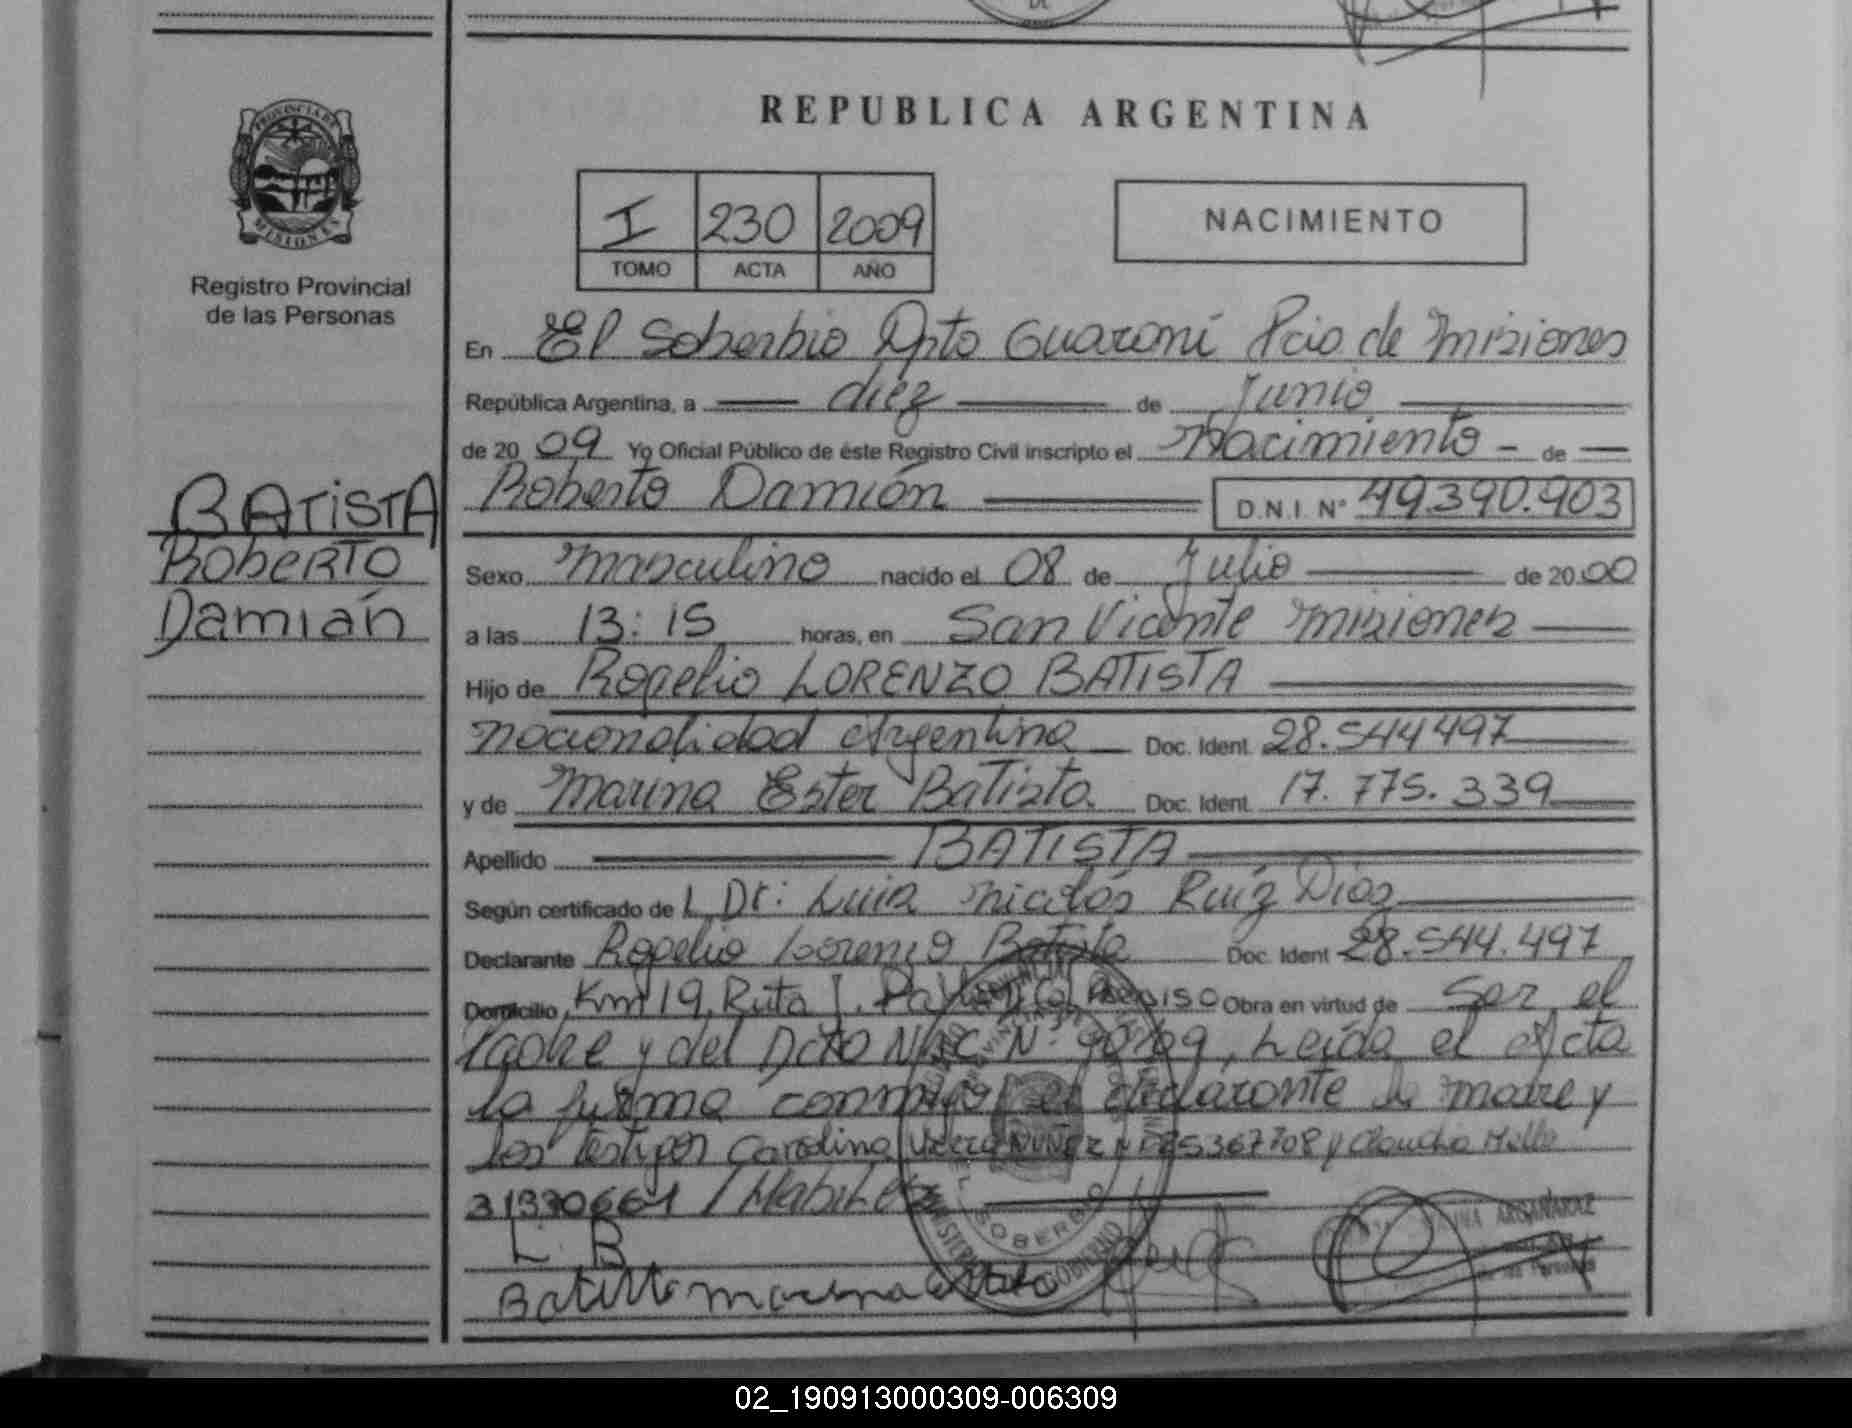 REPUBLICA ARGENTINA
PROVINCIA DE
MISIONES
Registro Provincial
de las Personas
I 230 2009
TOMO ACTA AÑO
NACIMIENTO
En El Soberbio Dpto Guaraní Pcia de Misiones
República Argentina, a diez de Junio
de 20 09 Yo Oficial Público de éste Registro Civil inscripto el Nacimiento - de
Roberto Damián D.N.I. N° 49.390.903
BATISTA
Roberto
Damián
Sexo masculino nacido el 08 de Julio de 20 00
a las 13:15 horas, en San Vicente Misiones
Hijo de Rogelio LORENZO BATISTA
nacionalidad Argentina Doc. Ident. 28.544497
y de Marina Ester Batista Doc. Ident. 17.775.339
Apellido BATISTA
Según certificado de L Dr: Luis Nicolás Ruíz Díaz
Declarante Rogelio Lorenzo Batista Doc. Ident 28.544.497
Domicilio Km 19, Ruta Obra en virtud de Ser el
Padre y del Dcto Nac N° Leída el Acta
la firma conmigo el declarante la madre y
los testigos Carolina y Claudia Mello
L. B
Batista marina
SOBERBIO
02_190913000309-006309